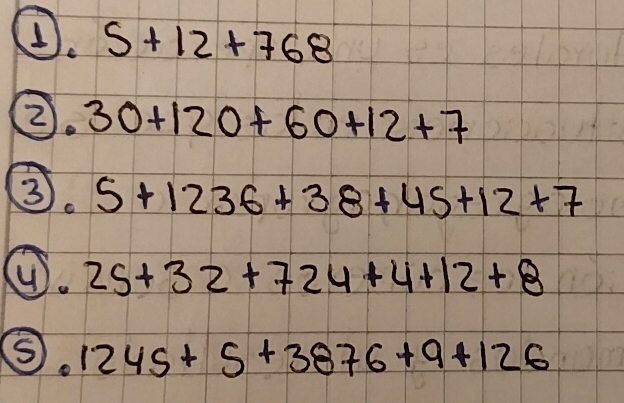 1. 5+12+768
2. 30+120+60+12+7
3. 5+1236+38+45+12+7
4. 25+32+724+4+12+8
5. 1245+5+3876+9+126